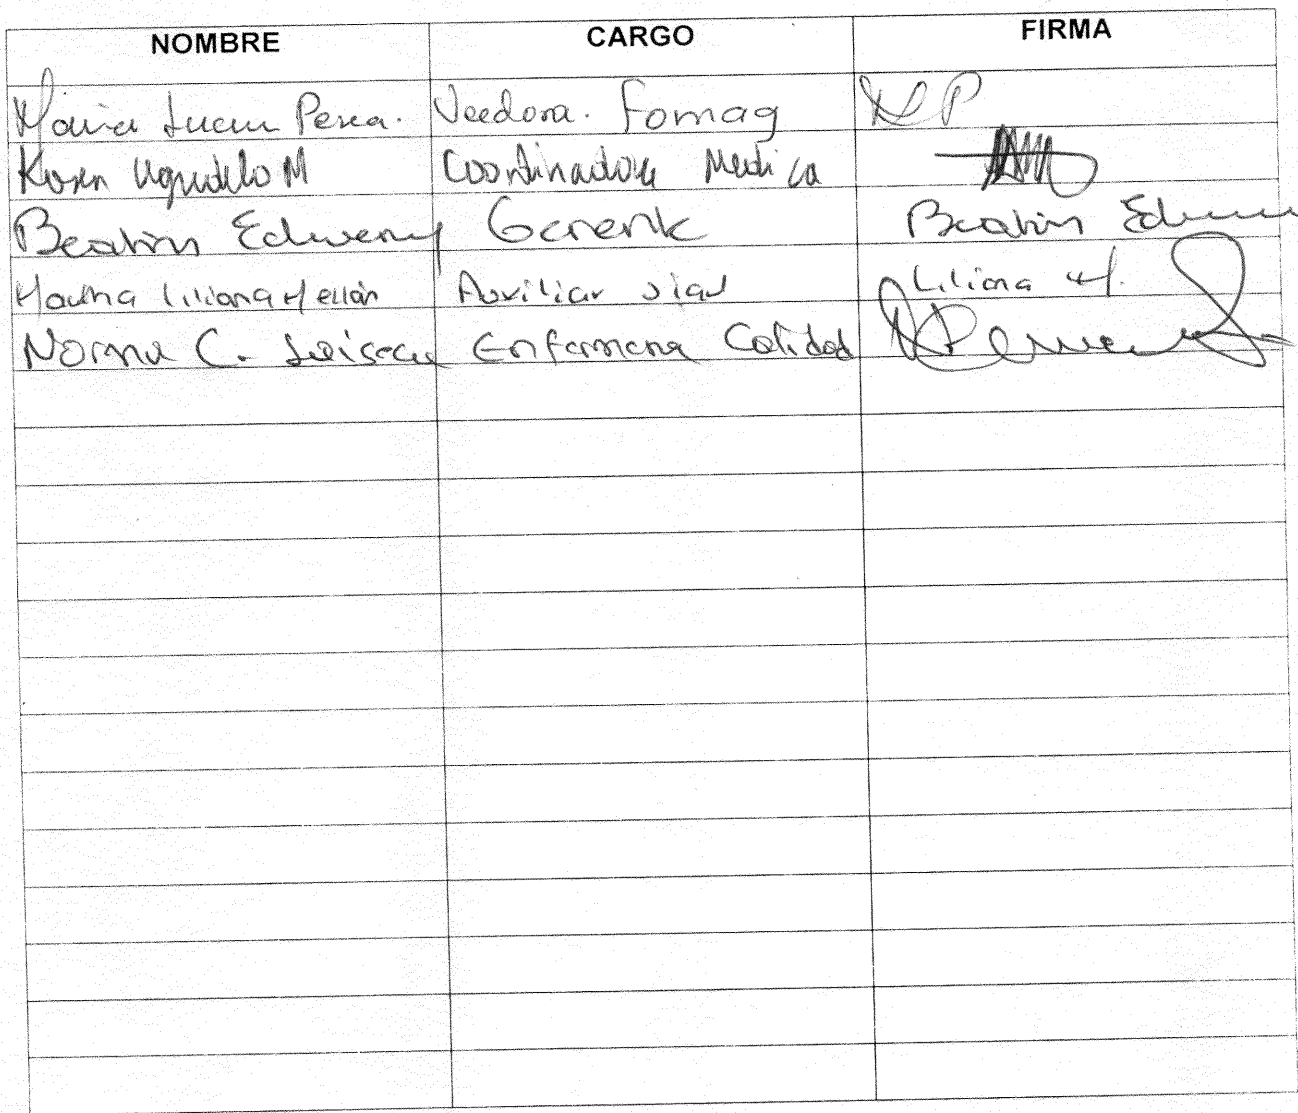 NOMBRE CARGO FIRMA
Maria Lucia Perea. Veedora. Fomag
Karen Agudelo M Coordinadora Medica
Beatriz Gerente Beatriz
Liliana Auxiliar siau Liliana
Norma C. Enfermera Calidad